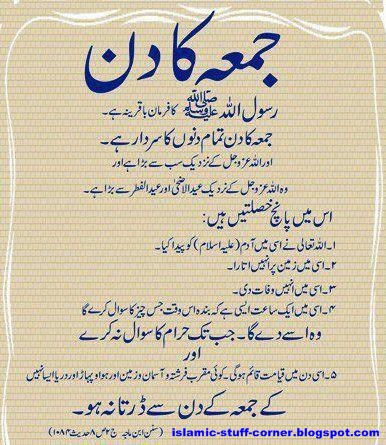 جمعہ کا دن
رسول اللہ ﷺ کا فرمان باقرینہ ہے۔
جمعہ کا دن تمام دنوں کا سردار ہے۔
اور اللہ عزوجل کے نزدیک سب سے بڑا ہے اور
وہ اللہ عزوجل کے نزدیک عیدالاضحیٰ اور عیدالفطر سے بڑا ہے۔
اس میں پانچ خصلتیں ہیں:
۱۔ اللہ تعالیٰ نے اسی میں آدم (علیہ اسلام) کو پیدا کیا۔
۲۔ اسی میں زمین پر انہیں اتارا۔
۳۔ اسی میں انہیں وفات دی۔
۴۔ اسی میں ایک ساعت ایسی ہے کہ بندہ اس وقت جس چیز کا سوال کرے گا
وہ اسے دے گا۔ جب تک حرام کا سوال نہ کرے
اور
۵۔ اسی دن میں قیامت قائم ہوگی۔ کوئی مقرب فرشتہ و آسمان و زمین اور ہوا و پہاڑ اور دریا ایسا نہیں
کے جمعہ کے دن سے ڈرتا نہ ہو۔
(سنن ابن ماجہ ج۲ ص۸ حدیث ۱۰۸۴)
islamic-stuff-corner.blogspot.com